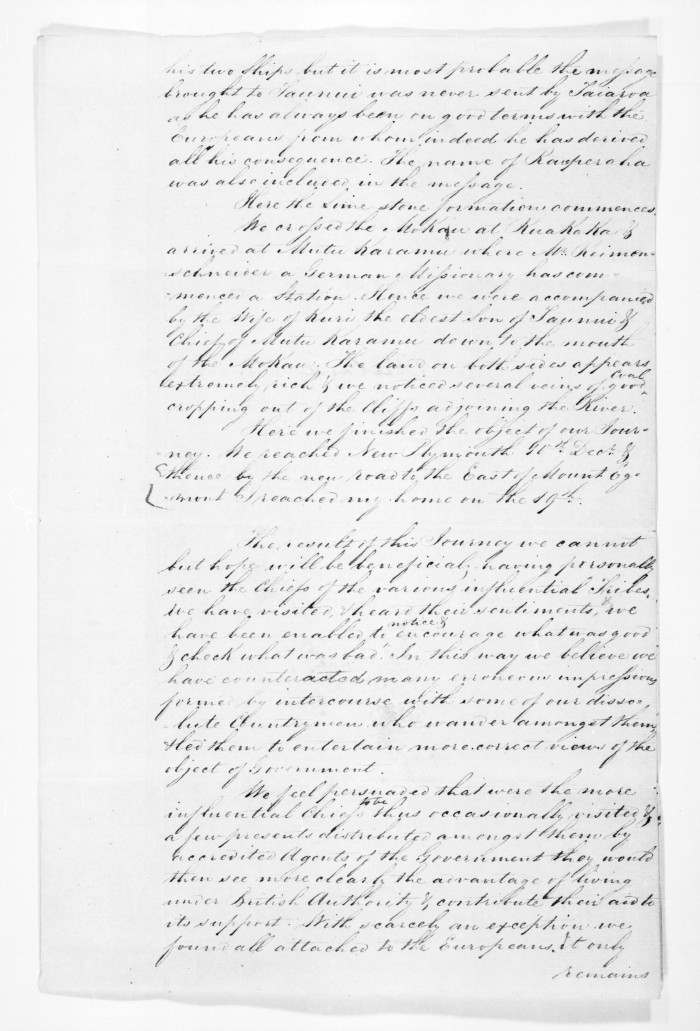 his two Ships but it is most probable the message
brought to Taunui was never sent by Taiaroa
as he has always been on good terms with the
Europeans from whom indeed he has derived
all his consequence. The name of Rauperaha
was also included in the message.
Here the Lime stone formation commences.
We crossed the Mokau at Kuakaka &
arrived at Mutu Karamu where Mr. Reimon-
schneider a German Missionary has com-
-menced a Station. Hence we were accompanied
by the Wife of Kuri the eldest Son of Taunui &
Chief of Mutu Karamu down to the mouth
of the Mokau. The land on both sides appears
extremely rich & we noticed several veins of good coal
cropping out of the Cliffs adjoining the River.
Here we finished the object of our Jour-
ney. We reached New Plymouth Decr. &
thence by the new road to the East of Mount Eg-
-mont I reached my home on the 19th.
The results of this Journey we cannot
but hope will be beneficial, having personally
seen the Chiefs of the various influential Tribes,
we have visited, & heard their sentiments, we
have been enabled to notice & encourage what was good
& check what was bad. In this way we believe we
have counteracted many erroneous impressions
formed by intercourse with some of our disso-
-lute Countrymen who wander amongst them,
& led them to entertain more correct views of the
object of Government.
We feel persuaded that were the more
influential Chiefs to be thus occasionally visited &
a few presents distributed amongst them by
accredited Agents of the Government they would
then see more clearly the advantage of living
under British Authority & contribute their aid to
its support. With scarcely an exception we
found all attached to the Europeans. It only
remains